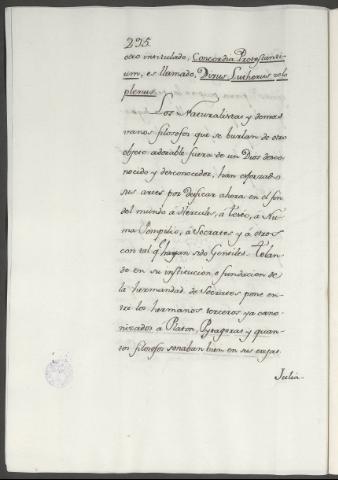 295.
otro intitulado, Concordia Protestanti-
um, es llamado, Divus Lutherus zelo
plenus.
Los Naturalistas y demas
vanos filosofos que se burlan de otro
objeto adorable fuera de un Dios desco-
nocido y desconocedor, han esforzado
sus artes por deificar ahora en el fin
del mundo à Hercules, à Teseo, à Nu-
ma Pompilio, à Socrates y à otros
con tal q. hayan sido Gentiles. Tolan-
do en su institucion o fundacion de
la hermandad de Socrates pone en-
tre los hermanos terceros ya cano-
nizados à Platon, Pytagoras y quan-
tos filosofos sonaban bien en sus orejas.
Julia-